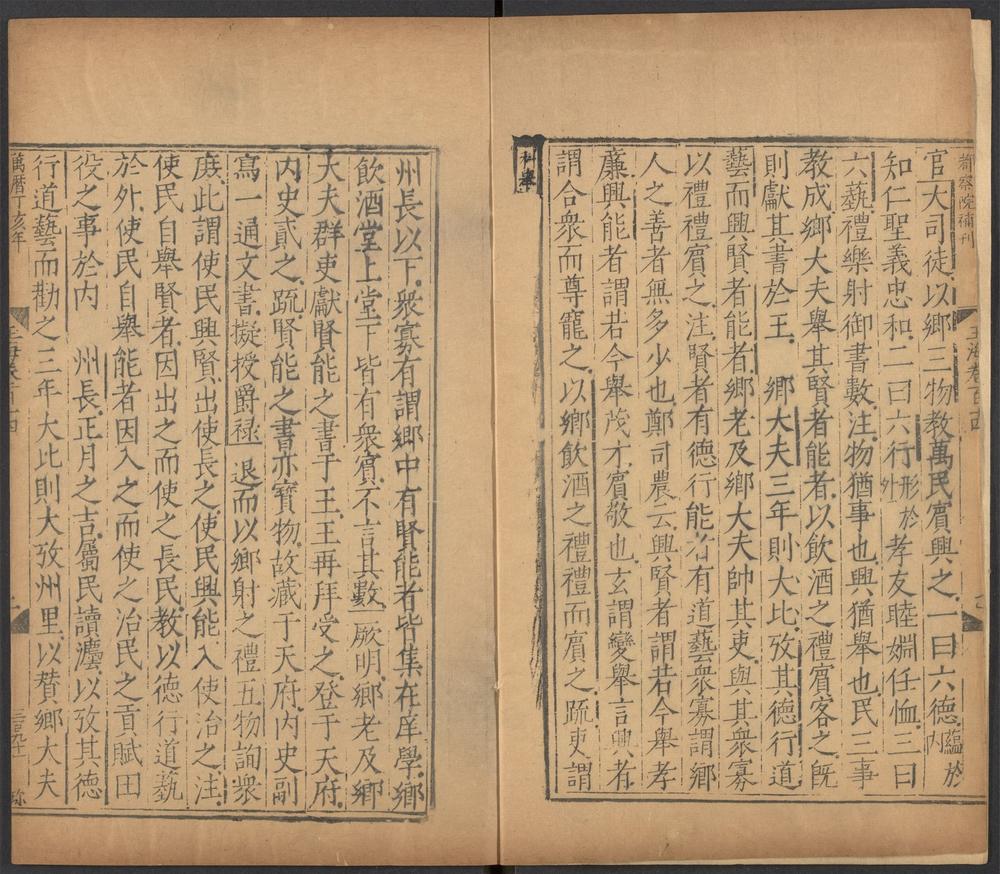 官大司徒以鄉三物教萬民賓興之一曰六德蘊於內
知仁聖義忠和二曰六行形於外孝友睦婣任恤三曰
六藝禮樂射御書數注物猶事也興猶舉也民三事
教成鄉大夫舉其賢者能者以飲酒之禮賓客之旣
則獻其書於王 鄉大夫三年則大比攷其德行道
藝而興賢者能者鄉老及鄉大夫帥其吏與其衆寡
以禮禮賓之注賢者有德行能者有道藝衆寡謂鄉
人之善者無多少也鄭司農云興賢者謂若今舉孝
廉興能者謂若今舉茂才賓敬也玄謂變舉言興者
謂合衆而尊寵之以鄉飲酒之禮禮而賓之疏吏謂
科舉
州長以下衆寡有謂鄉中有賢能者皆集在庠學鄉
飲酒堂上堂下皆有衆賓不言其數厥明鄉老及鄉
大夫群吏獻賢能之書于王王再拜受之登于天府
內史貳之疏賢能之書亦寶物故藏于天府內史副
寫一通文書擬授爵祿 退而以鄉射之禮五物詢衆
庻此謂使民興賢出使長之使民興能入使治之注
使民自舉賢者因出之而使之長民教以德行道藝
於外使民自舉能者因入之而使之治民之貢賦田
役之事於內 州長正月之吉屬民讀灋以攷其德
行道藝而勸之三年大比則大攷州里以賛鄉大夫
萬曆丁亥年